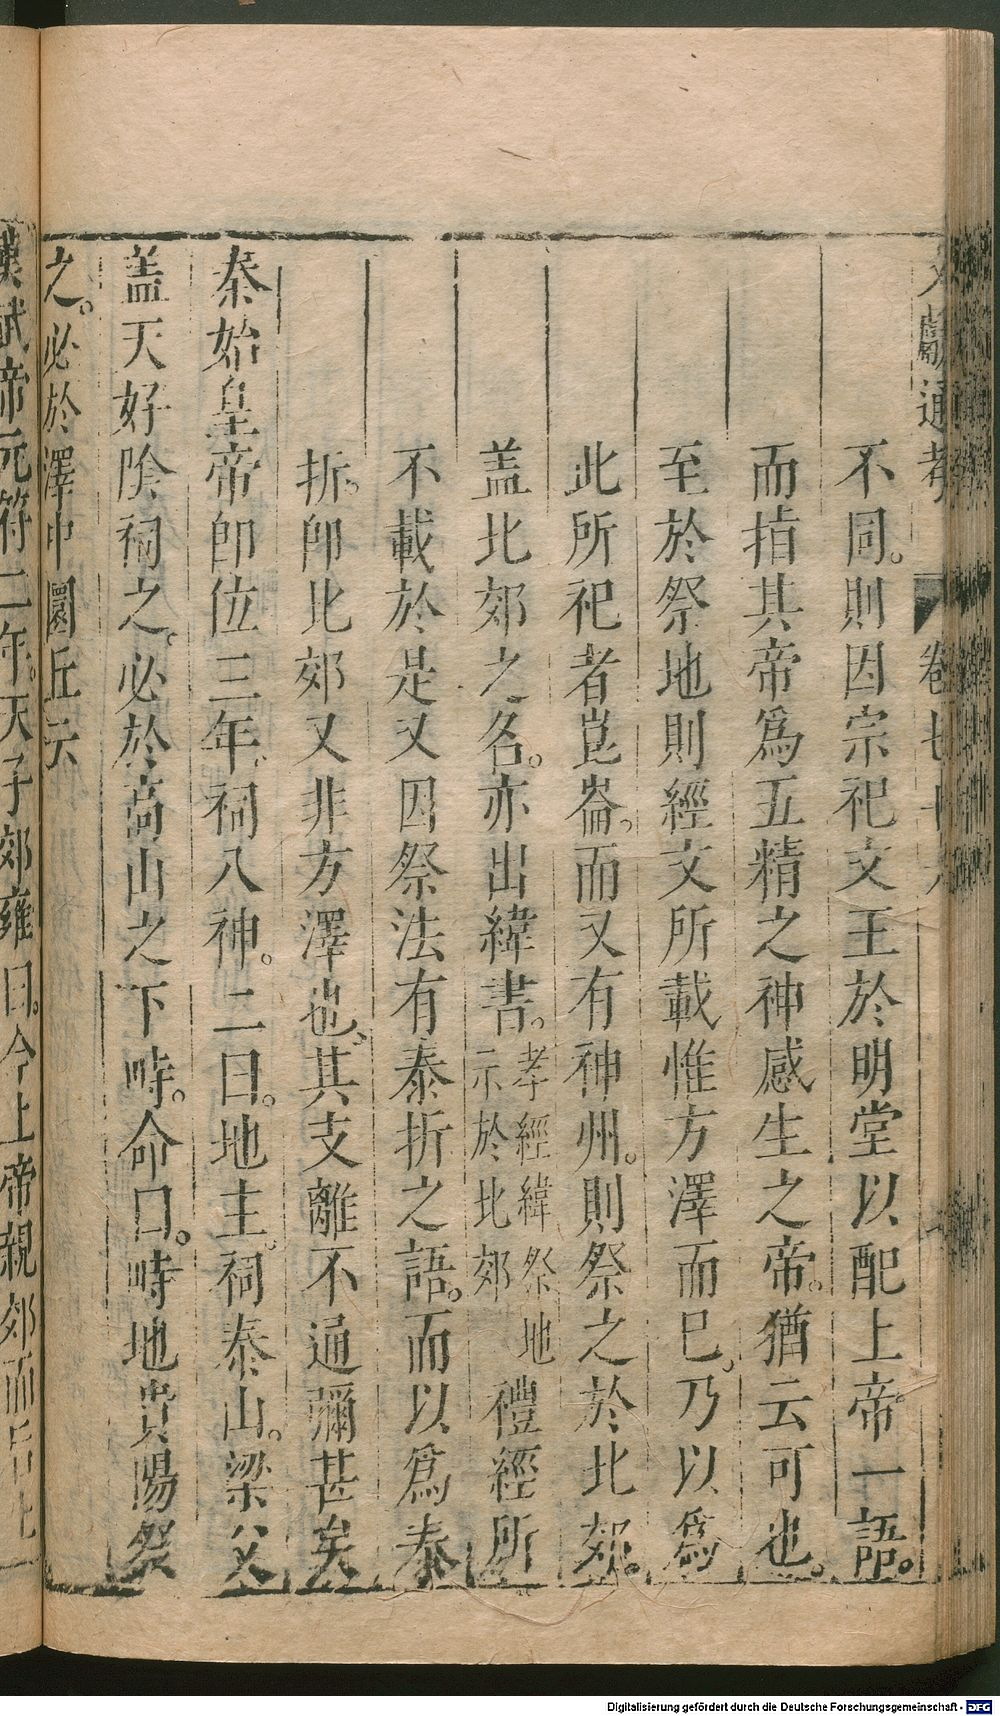 文獻通考 卷七十六
不同。則因宗祀文王於明堂以配上帝一語。
而指其帝爲五精之神感生之帝。猶云可也。
至於祭地則經文所載惟方澤而巳。乃以爲
此所祀者崑崙。而又有神州。則祭之於北郊。
盖北郊之名。亦出緯書。孝經緯祭地示於北郊禮經所
不載於是又因祭法有泰折之語。而以爲泰
折。卽北郊又非方澤也。其支離不通彌甚矣
秦始皇帝卽位三年。祠八神。二曰。地主。祠泰山。梁父
盖天好陰祠之。必於高山之下畤。命曰。畤地貴陽祭
之。必於澤中圜丘云
漢武帝元符二年。天子郊雍曰。今上帝親郊而后
Digitalisierung gefördert durch die Deutsche Forschungsgemeinschaft - DFG